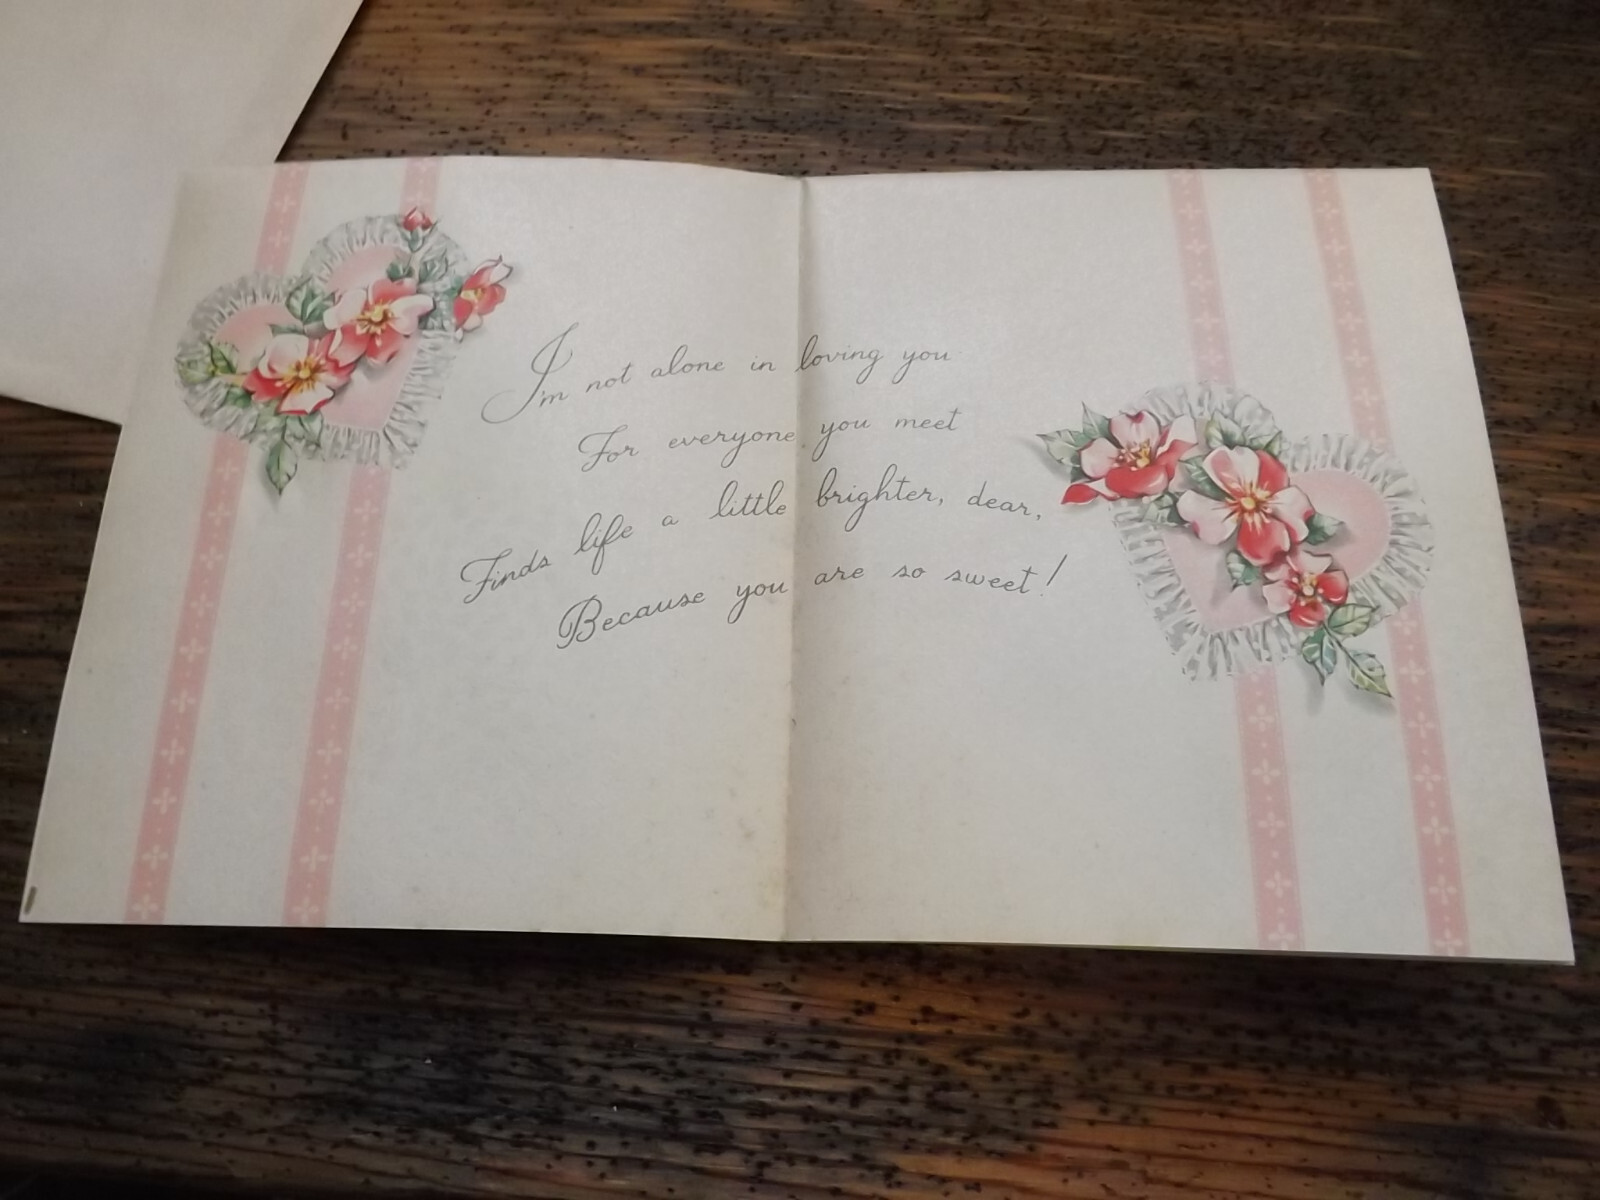 I'm not alone in loving you
For everyone you meet
Finds life a little brighter, dear,
Because you are so sweet!